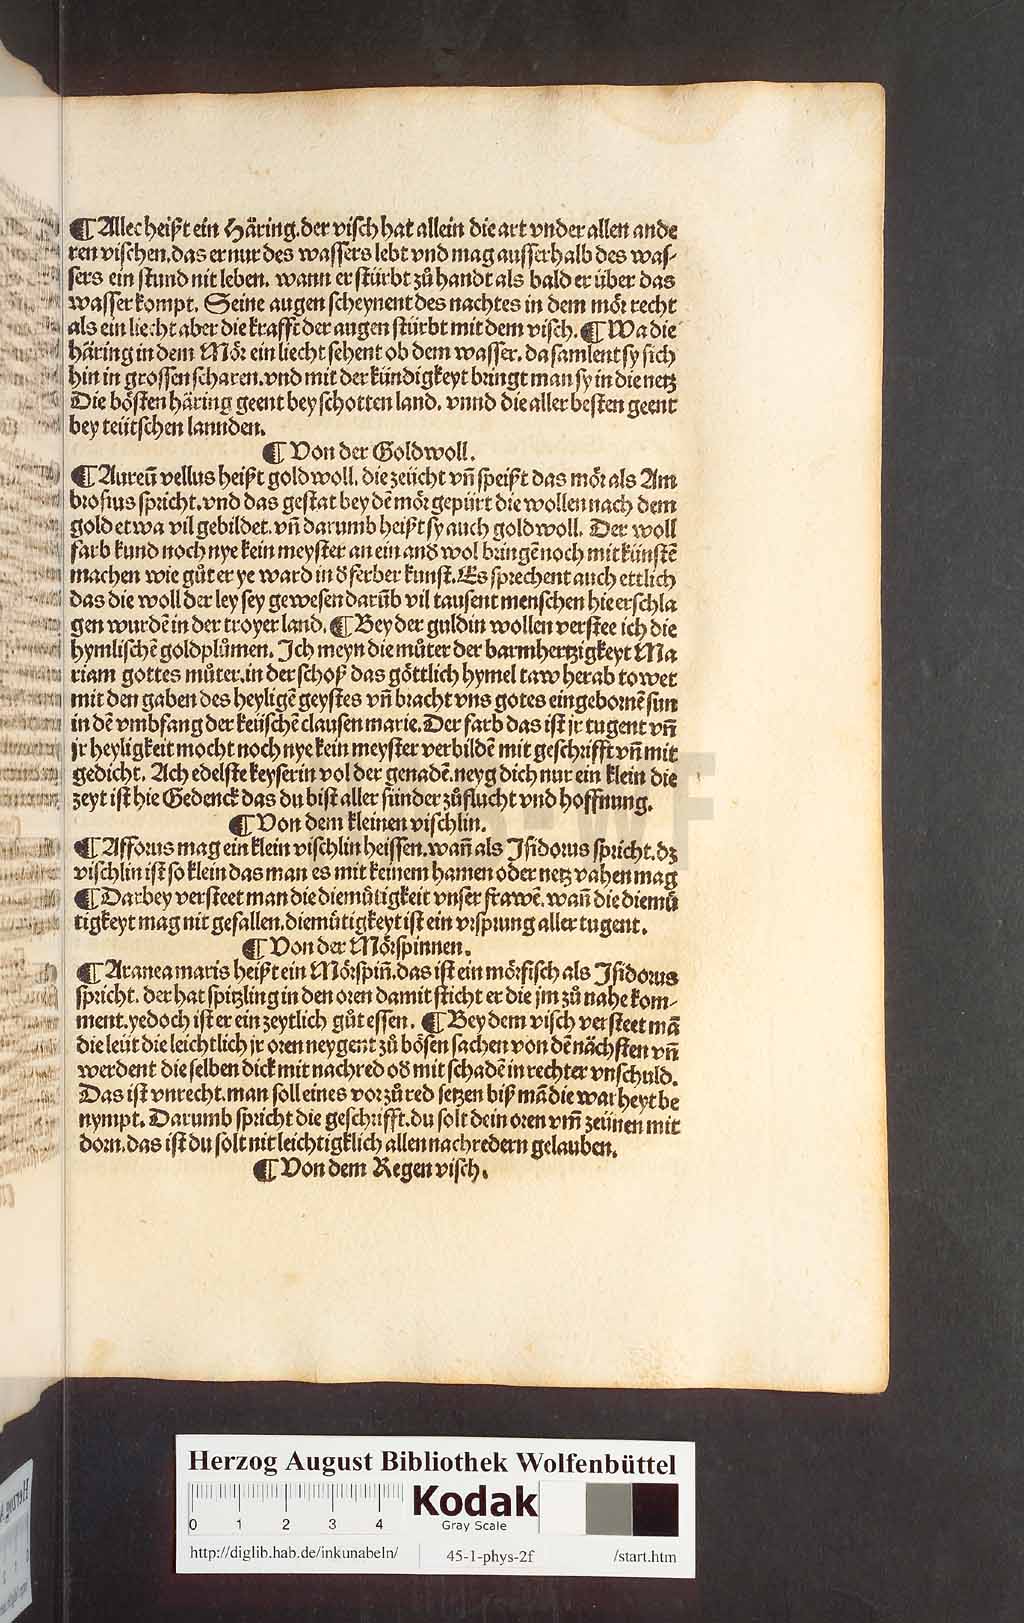 ¶ Allec heißt ein Häring. der visch hat allein die art vnder allen ande
ren vischen. das er nur des wassers lebt vnd mag ausserhalb des was⸗
sers ein stund nit leben. wann er stürbt zů handt als bald er über das
wasser kompt. Seine augen scheynent des nachtes in dem mör recht
als ein liecht aber die krafft der augen stürbt mit dem visch. ¶ Wa die
häring in dem Mör ein liecht sehent ob dem wasser. da samlent sy sich
hin in grossen scharen. vnd mit der kündigkeyt bringt man sy in die netz
Die bösten häring geent bey schotten land. vnnd die aller besten geent
bey teütschen lannden.
¶ Von der Goldwoll.
¶ Aureū vellus heißt goldwoll. die zeücht vn̄ speißt das mör als Am
brosius spricht. vnd das gestat bey dē mör gepürt die wollen nach dem
gold etwa vil gebildet. vn̄ darumb heißt sy auch goldwoll. Der woll
farb kund noch nye kein meyster an ein and' wol bringē noch mit künstē
machen wie gůt er ye ward in d' ferber kunst. Es sprechent auch ettlich
das die woll der ley sey gewesen darūb vil tausent menschen hie erschla
gen wurdē in der troyer land. ¶ Bey der guldin wollen verstee ich die
hymlischē goldplůmen. Ich meyn die můter der barmhertzigkeyt Ma
riam gottes můter. in der schoß das göttlich hymel taw herab towet
mit den gaben des heyligē geystes vn̄ bracht vns gotes eingebornē sun
in dē vmbfang der keüschē clausen marie. Der farb das ist jr tugent vn̄
jr heyligkeit mocht noch nye kein meyster verbildē mit geschrifft vn̄ mit
gedicht. Ach edelste keyserin vol der genadē. neyg dich nur ein klein die
zeyt ist hie Gedenck das du bist aller sünder zůflucht vnd hoffnung.
¶ Von dem kleinen vischlin.
¶ Afforus mag ein klein vischlin heissen. wan̄ als Isidorus spricht. dz
vischlin ist so klein das man es mit keinem hamen oder netz vahen mag
¶ Darbey versteet man die diemůtigkeit vnser frawē. wan̄ die diemů
tigkeyt mag nit gefallen. diemůtigkeyt ist ein vrsprung aller tugent.
¶ Von der Mörspinnen.
¶ Aranea maris heißt ein Mörspin̄. das ist ein mörfisch als Isidorus
spricht. der hat spitzling in den oren damit sticht er die jm zů nahe kom⸗
ment. yedoch ist er ein zeytlich gůt essen. ¶ Bey dem visch versteet mā
die leüt die leichtlich jr oren neygent zů bösen sachen von dē nächsten vn̄
werdent die selben dick mit nachred od' mit schadē in rechter vnschuld.
Das ist vnrecht. man soll eines vor zů red setzen biß mā die warheyt be
nympt. Darumb spricht die geschrifft. du solt dein oren vm̄ zeünen mit
dorn. das ist du solt nit leichtigklich allen nachredern gelauben.
¶ Von dem Regen visch.
Herzog August Bibliothek Wolfenbüttel
0 1 2 3 4
Kodak
Gray Scale
http://diglib.hab.de/inkunabeln/ 45-1-phys-2f /start.htm